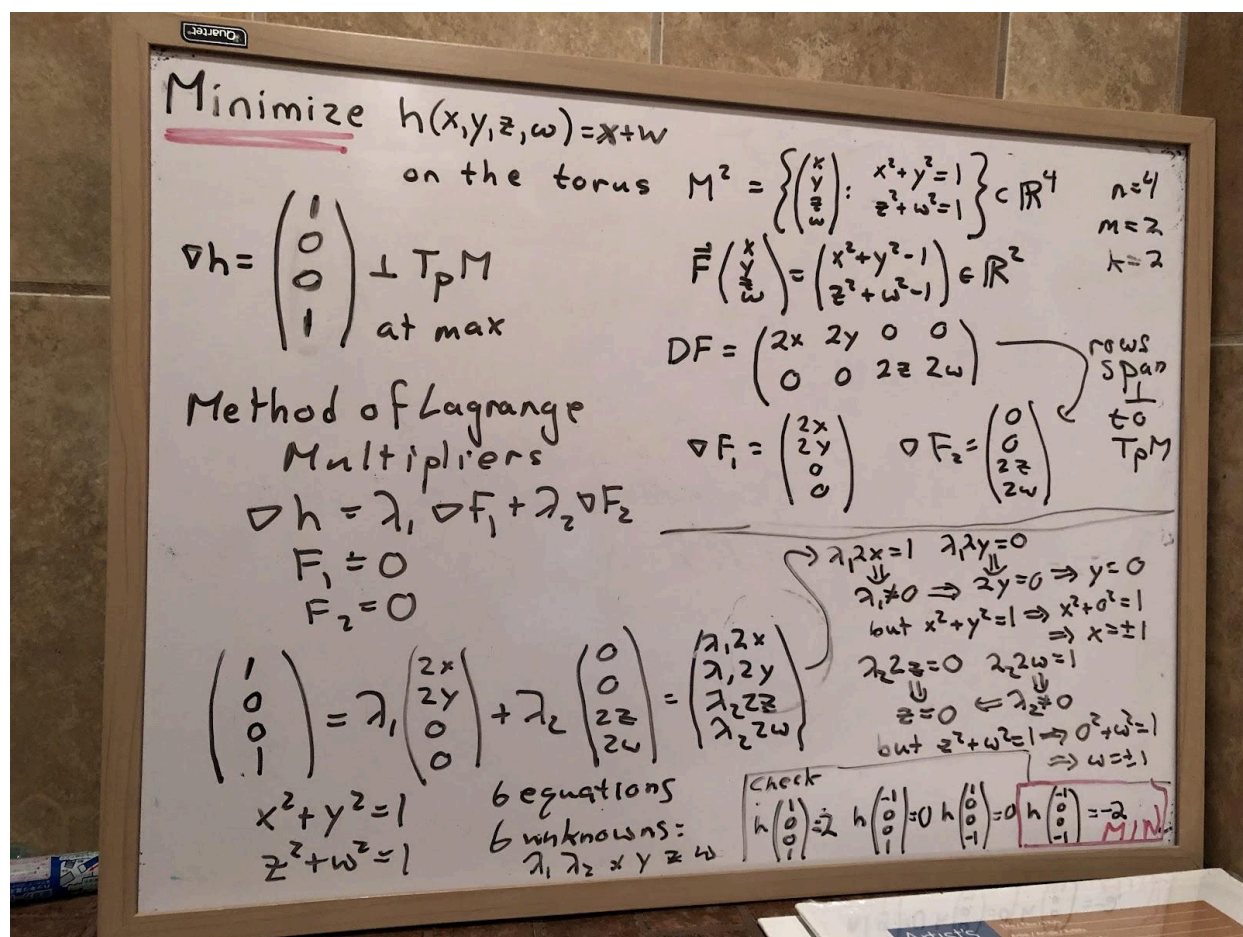 Quartet
Minimize h(x,y,z,w)=x+w
on the torus M² = {(x y z w): x²+y²=1 z²+w²=1} ⊂ ℝ⁴
n=4
m=2
k=2
∇h = (1 0 0 1) ⊥ TₚM
at max
F⃗(x y z w) = (x²+y²-1 z²+w²-1) ∈ ℝ²
DF = (2x 2y 0 0
0 0 2z 2w)
rows
span
⊥
to
TₚM
∇F₁ = (2x 2y 0 0) ∇F₂ = (0 0 2z 2w)
Method of Lagrange
Multipliers
∇h = λ₁∇F₁ + λ₂∇F₂
F₁ = 0
F₂ = 0
(1 0 0 1) = λ₁(2x 2y 0 0) + λ₂(0 0 2z 2w) = (λ₁2x λ₁2y λ₂2z λ₂2w)
x²+y²=1
z²+w²=1
6 equations
6 unknowns:
λ₁ λ₂ x y z w
→ λ₁2x=1 λ₁2y=0
⇓ ⇓
λ₁≠0 ⇒ 2y=0 ⇒ y=0
but x²+y²=1 ⇒ x²+0²=1
⇒ x=±1
λ₂2z=0 λ₂2w=1
⇓ ⇓
z=0 ⇐ λ₂≠0
but z²+w²=1 ⇒ 0²+w²=1
⇒ w=±1
Check
h(1 0 0 1)=2 h(-1 0 0 1)=0 h(1 0 0 -1)=0 h(-1 0 0 -1)=-2
MIN
Artist's